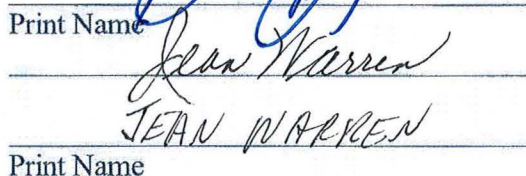 Print Name
Jean Warren
JEAN WARREN
Print Name